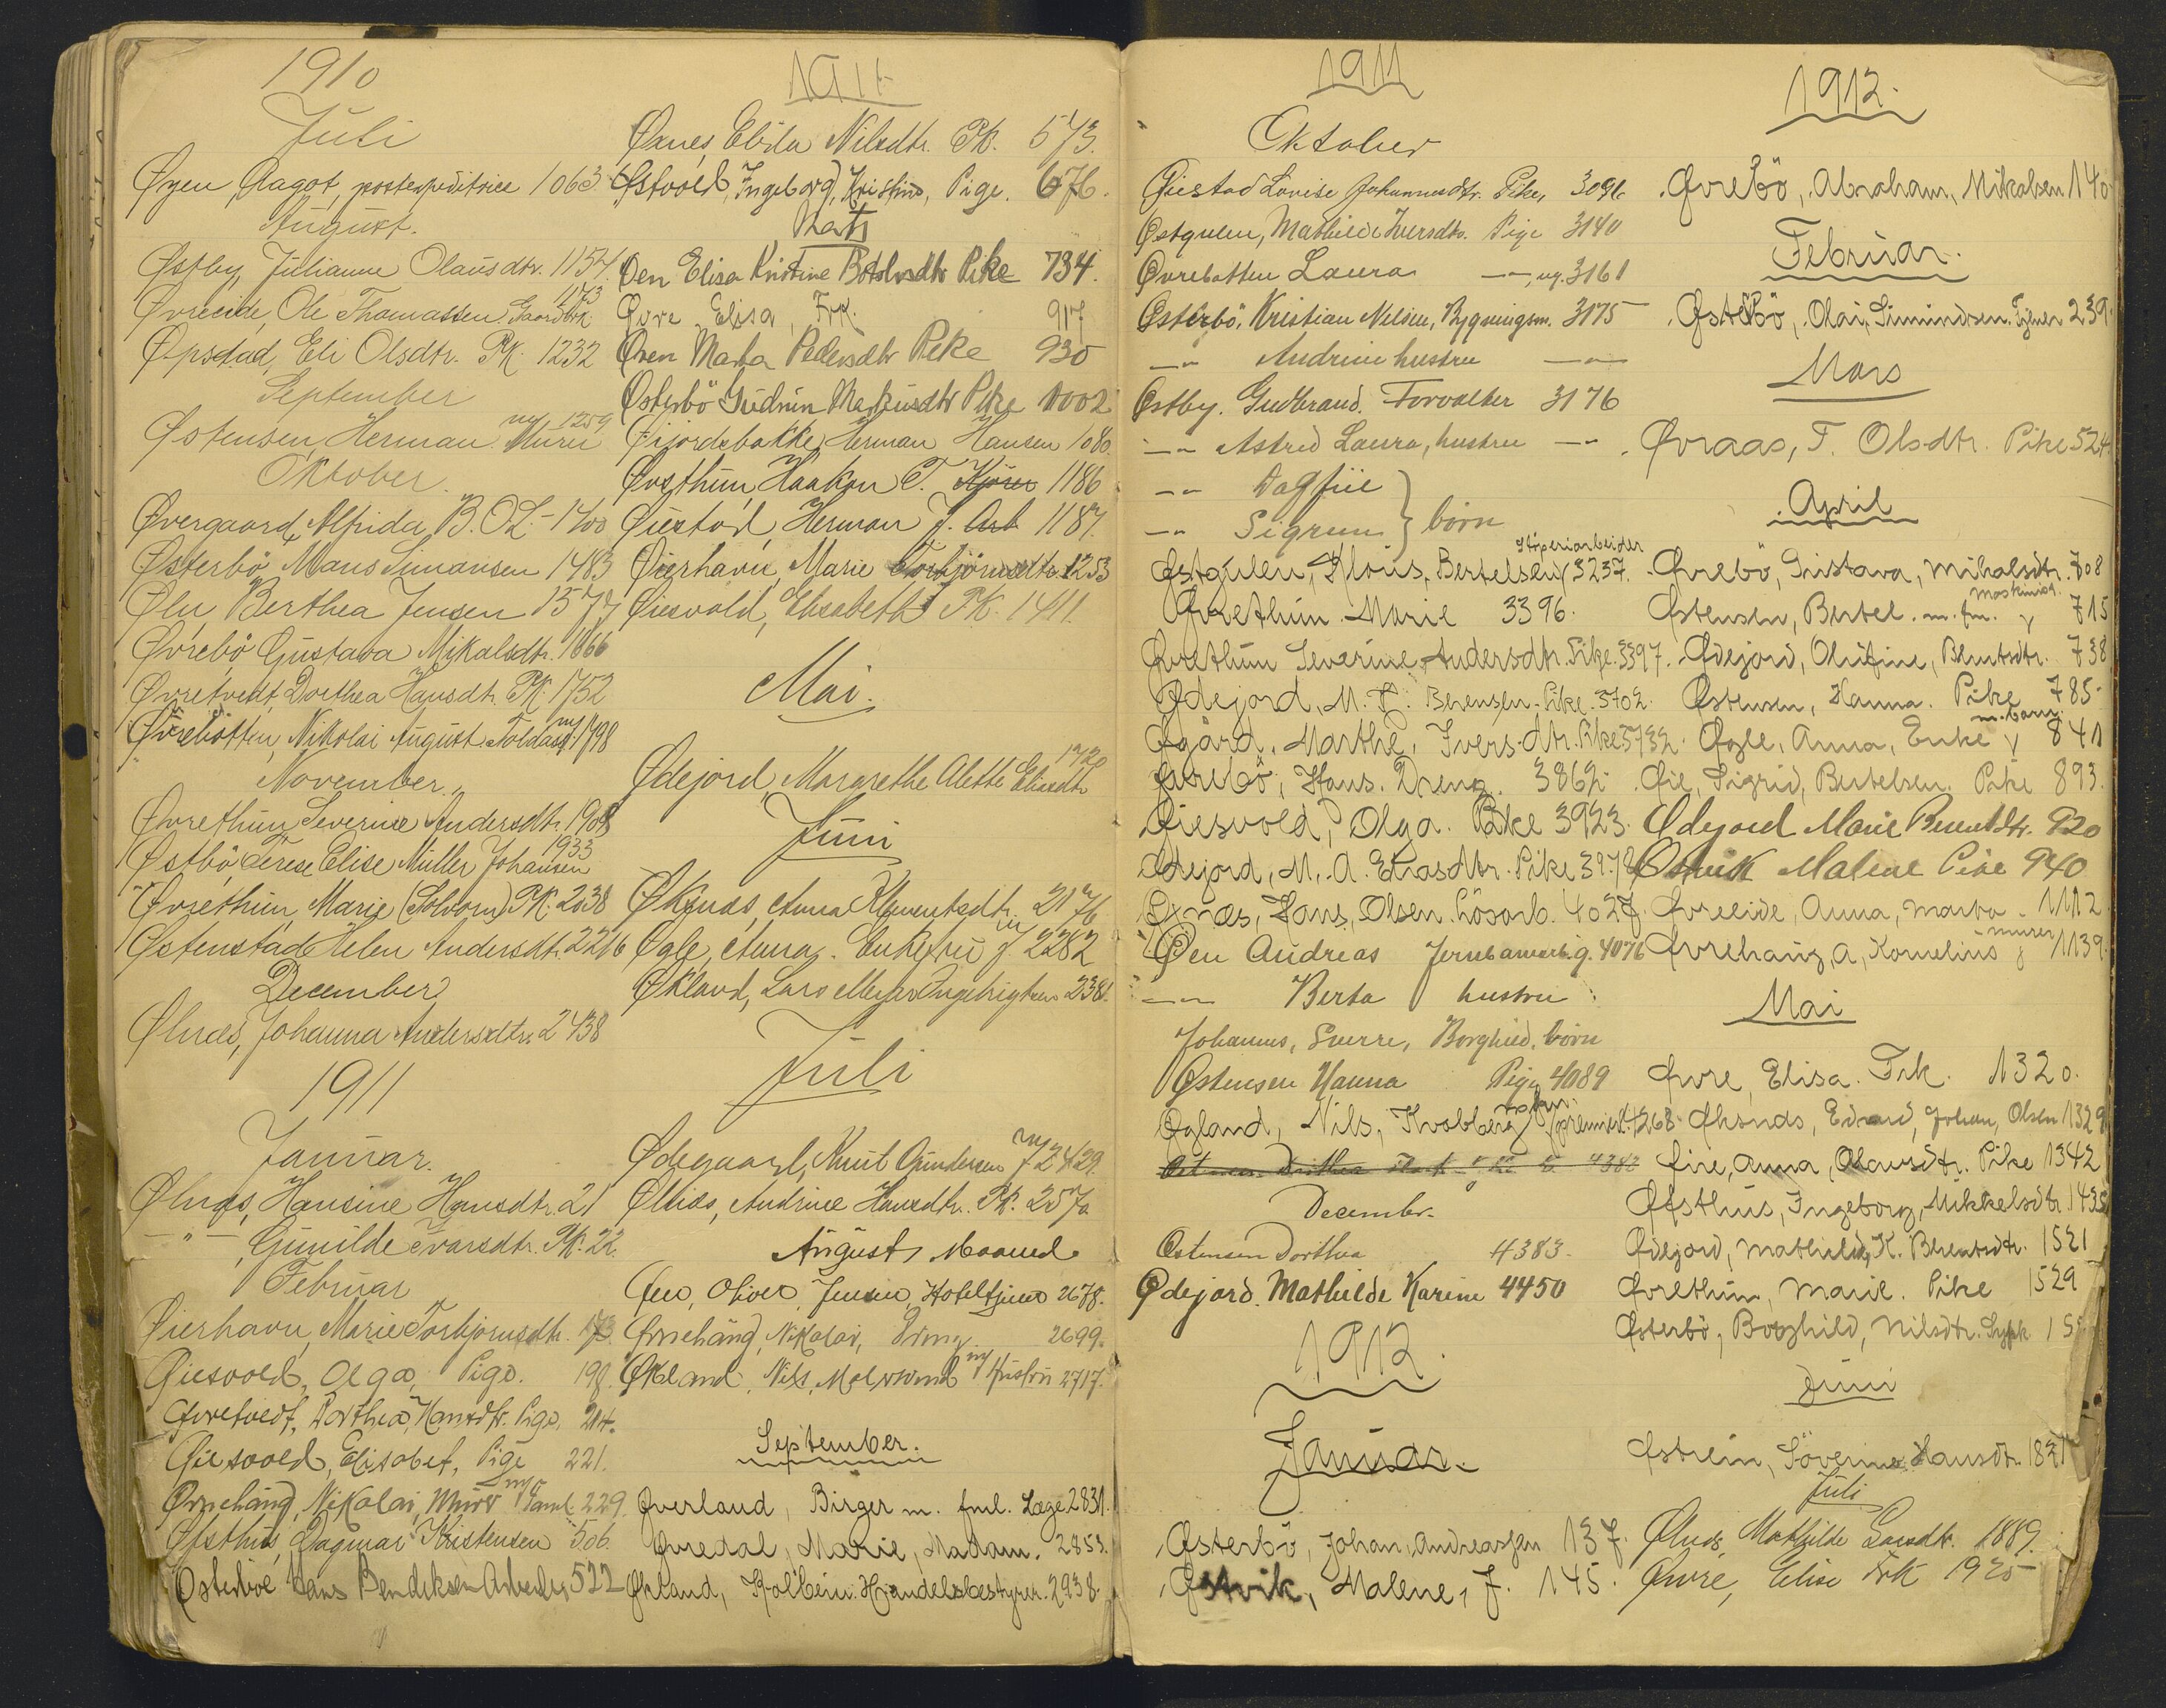 1910
Juli
Øyen Ragot, postexpeditrice 1063
August.
Østby, Julianne Olausdtr. 1154
Øvreeide, Ole Thomassen. Gaardbrk. 1173
Øpstad, Eli Olsdtr. PK. 1232
September
Østensen, Herman Murer m/ 1259
Oktober.
Øvergaard, Alfrida B.O.L. - 1400
Østerbö Mans Simansen 1483
Øln, Berthea Jensen 1577
Øvrebö Gustava Mikalsdtr. 1666
Øvretvedt, Dorthea Hansdtr. PK. 1752
Øvrebotten, Nikolai August m/ 1798
November.
Øvrethun, Severine Andersdtr. 1908
Østbö, Terese Elise Müller Johansen 1933
Øvrethun, Marie (Solvorn) PK. 2038
Østenstad Helen Andersdtr. 2216
December
Ølnæs, Johanna Andersdtr. 2438
1911
Januar.
Ølnæs, Hansine Hansdtr. 21
— " — Gunilde Ivarsdtr. PK. 22.
Februar
Øierhavn, Marie Torbjørnsdtr. 173.
Øiesvold, Olga, Pige. 198.
Øvretvedt, Dorthea, Hansdtr. Pige, 214.
Øiesvold, Elisabet, Pige 221.
Øvrehaug, Nikolai, Murer m/ Faml. 229.
Øfsthus, Dagmar Kristensen 506.
Østerböe Hans Bendiksen Arbeider 522
1911
Øxnes, Elida Nilsdtr. PK. 573.
Østvold, Ingeborg, Kristine, Pige. 676.
Marts
Øen Elisa Kristine Botolvsdtr Pike 734.
Øvre, Elisa, Frk. 917
Øren Marta Pedersdtr Pike 930
Østerbö Gudrun Markusdtr Pike 1002
Øijordsbakke, Herman Hansen 1080.
Øvsthun, Haakon T. Kjörer 1186
Øiestad, Herman J. Arb 1187.
Øierhavn, Marie Torbjörnsdtr. 1253
Øiesvold, Elisabeth PK. 1411.
Mai.
Ødejord, Margrethe Alette Eliasdtr 1720
Juni
Øksnæs, Anna Klementsdtr. 2176
Øgle, Anna. Enkefru 2282
Økland, Lars Meyer Ingebrigtsen 2381.
Juli
Ødegaard, Knut Gundersen m/ 2429.
Ølnæs, Andrine Hansdtr. PK. 2570
August Maaned
Øen, Oliver, Jensen, Hoteltjener 2678.
Øvrehaug, Nikolai, Dreng 2699.
Økland, Nils, m/ Hustru 2717.
September.
Øverland, Birger m. fml. Læge 2831.
Øvredal, Marie, Madam. 2853.
Økland, Kolbein. Handelsbestyrer. 2938.
1911
Oktober
Øiestad Lovise Johannesdtr. Pike, 3091.
Østgulen, Mathilde Iversdtr. Pige 3140
Øvrebotten Laura —"—, ug. 3161
Østerbö, Kristian Nilsen, Bygningsm. 3175
—"— Andrine hustru —"—
Østby. Gudbrand. Forvalter 3176
—"— Astrid Laura, hustru —"—
—"— Dagfin
—"— Sigrun } börn
Støperiarbeider
Østgulen, Mons, Bertelsen, 3237.
Øvrethun. Marie 3396.
Øvrethun Severine, Andersdtr. Pike. 3397.
Ødejord, M. K. Berensen. Pike. 3702.
Øgård, Marthe, Ivers.dtr. Pike 3732.
Øvrebö, Hans. Dreng. 3862.
Øiesvold, Olga. Pike 3923.
Ødejord, M. A. Eliasdtr. Pike 3978
Øynæs, Hans, Olsen. Lösarb. 4027.
Øen Andreas Jernbanearb. g. 4076
—"— Berta hustru
Johannes, Sverre, Borghild, børn
Østensen Hanna Pige 4089
Øgland, Nils, Kvobberg 4268.
4383
December.
Østensen Dorthea 4383.
Ødejord. Mathilde Karine 4450
1912.
Januar.
Østerbö, Johan, Andreassen 137.
Østvik, Malene, f. 145.
1912.
Øvrebö, Abraham, Mikalsen 140
Februar.
Østebö, Olai, Simundsen. Tjener 239.
Mars
Øvraas, T. Olsdtr. Pike 524.
April
Øvrebö, Gustava, Mikalsdtr. 708
Østensen, Bertel. m. fm. Maskinia. 715
Ødejord, Olufine, Berntsdtr. 738
Østensen, Hanna. Pike 785.
Øgle, Anna, Enke m. barn 841
Øie, Sigrid, Bertelsen. Pike 893.
Ødejord Marie Berentdtr. 920
Østvik Malene Pike 940
Øvreeide, Anna, Marta. 1112
Øvrehaug, A, Kornelius murer 1139.
Mai
Øvre, Elisa. Frk. 1320.
Øksnæs, Edvard, Johan, Olsen 1329
Øire, Anna, Olausdtr. Pike 1342
Øfsthus, Ingeborg, Mikkelsdtr 1435
Ødejord, Mathilde, K. Berentsdtr. 1521
Øvrethun, Marie. Pike 1529
Østerbö, Borghild, Nilsdtr.
Juni
Østrein, Söverine Hansdtr. 1821
Juli
Ølnæs, Mathilde Larsdtr. 1889.
Øvre, Elise Frk 1925